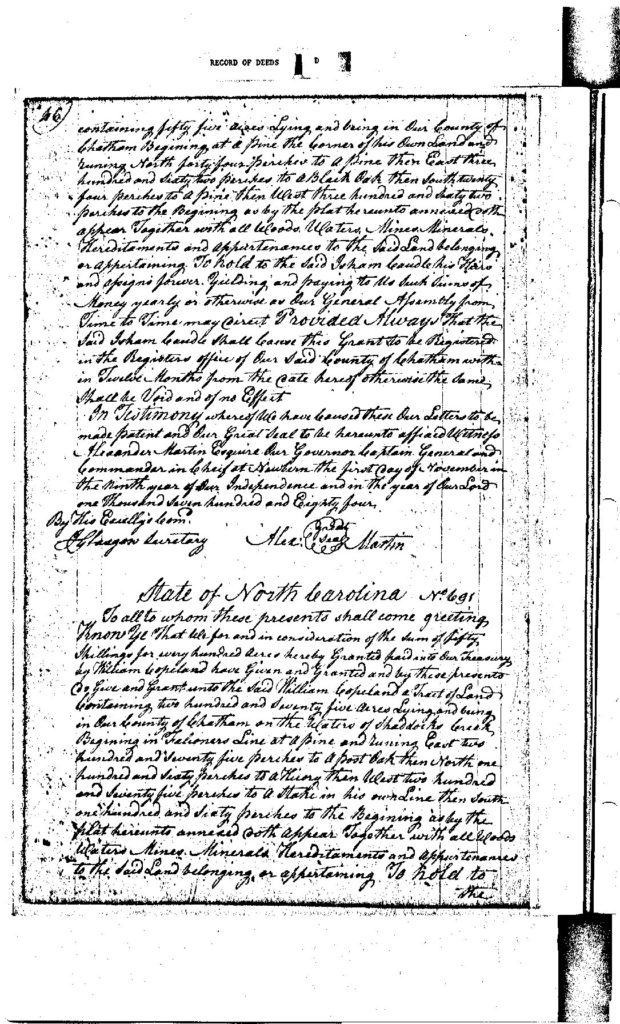 RECORD OF DEEDS D
46
containing fifty five Acres Lying and being in Our County of
Chatham Begining at A pine the Corner of his Own Land and
runing North forty four perches to A pine then East three
hundred and Sixty two perches to A Black Oak then South twenty
four perches to A pine then West three hundred and Sixty two
perches to the Begining as by the plat hereunto annexed doth
appear Together with all Woods, Waters, Mines, Minerals,
Hereditaments and Appurtenances to the Said Land belonging
or Appertaining To hold to the Said Isham Caudle his Heirs
and assigns forever. Yielding and paying to Us Such Sums of
Money yearly or otherwise as Our General Assembly from
Time to Time may direct Provided Always That the
Said Isham Caudle Shall Cause this Grant to be Registered
in the Registers office of Our Said County of Chatham with-
in Twelve Months from the date hereof otherwise the Same
Shall be Void and of no Effect
In Testimony whereof We have Caused these Our Letters to be
made patent and Our Great Seal to be hereunto affixed Witness
Alexander Martin Esquire Our Governor Captain General and
Commander in Cheif at Newbern the first day of November in
the Ninth year of Our Independence and in the year of Our Lord
one Thousand Seven hundred and Eighty four,
By His Excelly's Com.
Glasgow Secretary Alex: Great Seal Martin
State of North Carolina No. 691
To all to whom these presents shall come greeting
Know Ye That We for and in consideration of the Sum of fifty
Shillings for every hundred Acres hereby Granted paid into Our Treasury
by William Copeland have Given and Granted and by these presents
do Give and Grant unto the Said William Copeland a Tract of Land
Containing two hundred and Seventy five Acres Lying and being
in Our County of Chatham on the Waters of Shaddocks Creek
Begining in Falconers Line at A pine and runing East two
hundred and Seventy five perches to A post Oak then North one
hundred and Sixty perches to A Hicory then West two hundred
and Seventy five perches to A Stake in his own Line then South
one hundred and Sixty perches to the Begining as by the
plat hereunto annexed doth Appear Together with all Woods
Waters, Mines, Minerals, Hereditaments and Appurtenances
to the Said Land belonging or appertaining To hold to
the